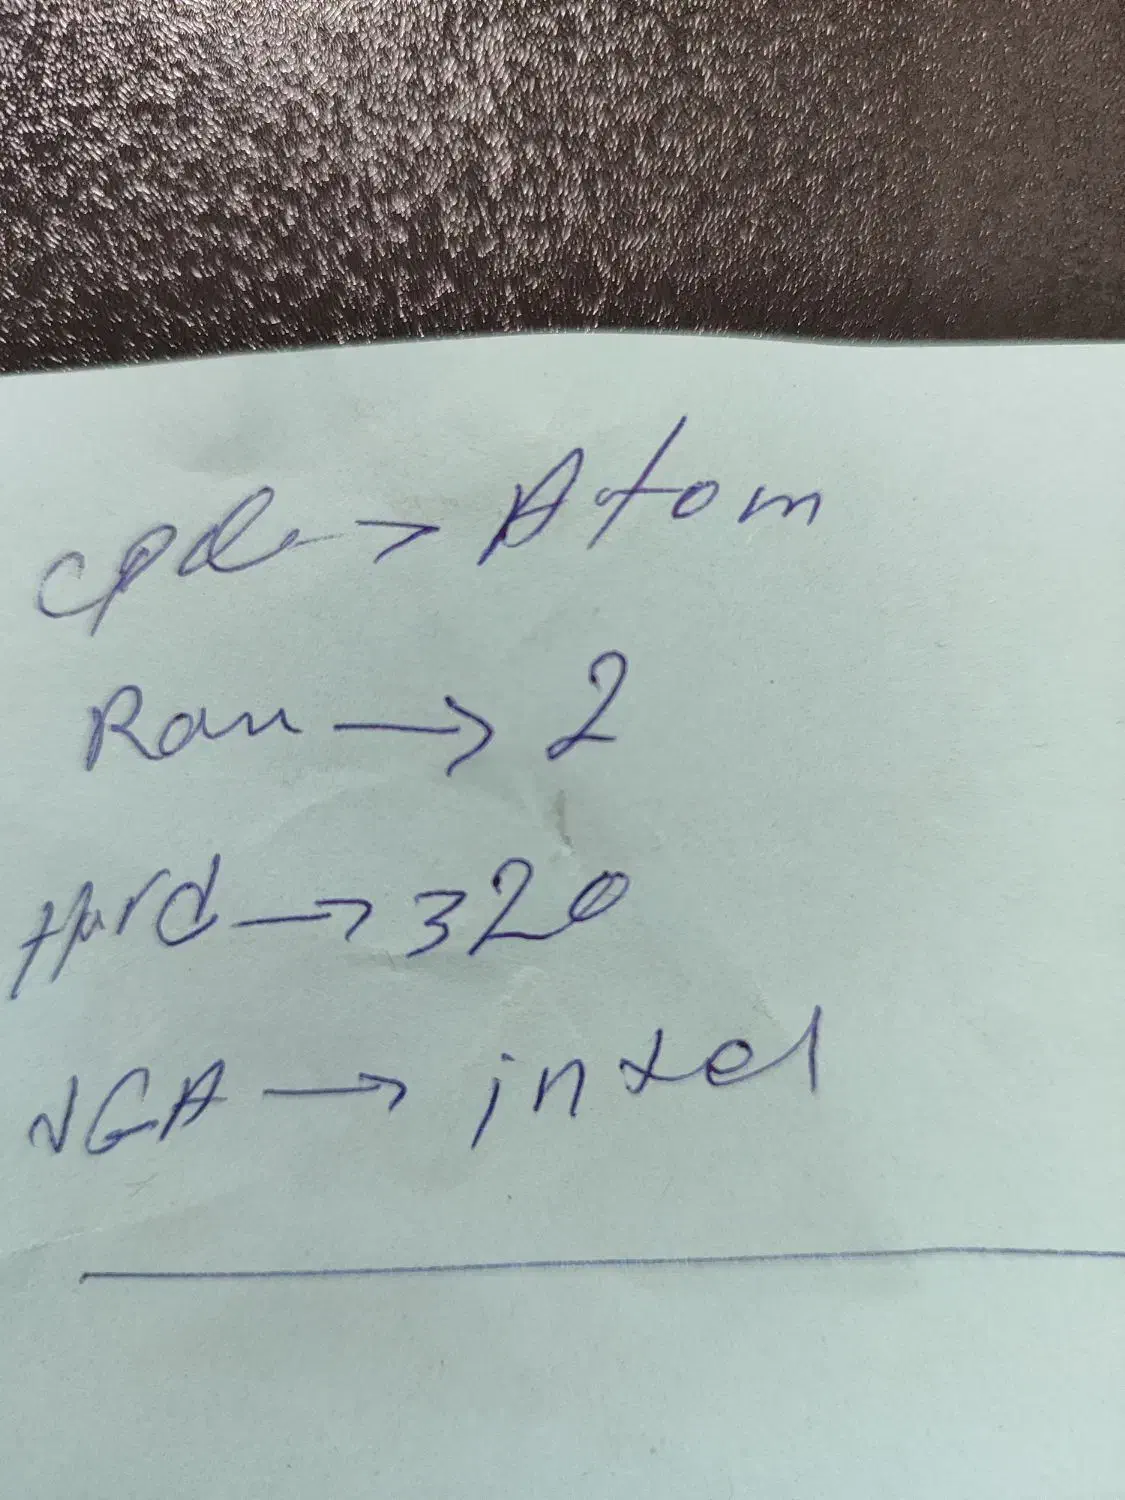 CPU → Atom
Ram → 2
Hard → 320
VGA → intel